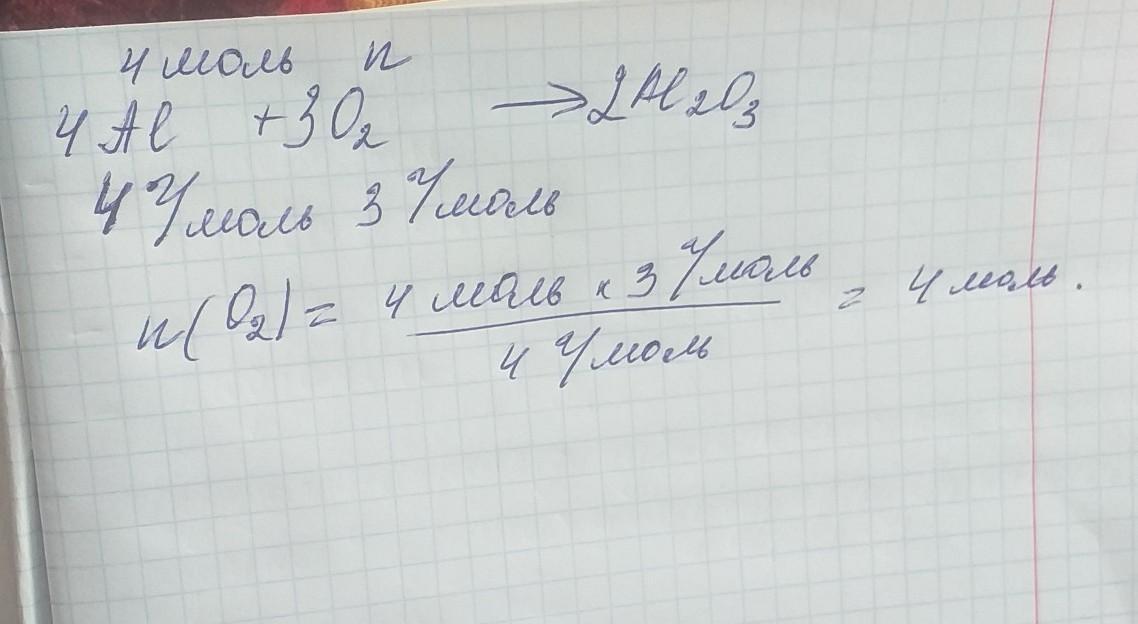 4 моль n
4Al + 3O₂ → 2Al₂O₃
4 г/моль 3 г/моль
n(O₂) = 4 моль × 3 г/моль / 4 г/моль = 4 моль.